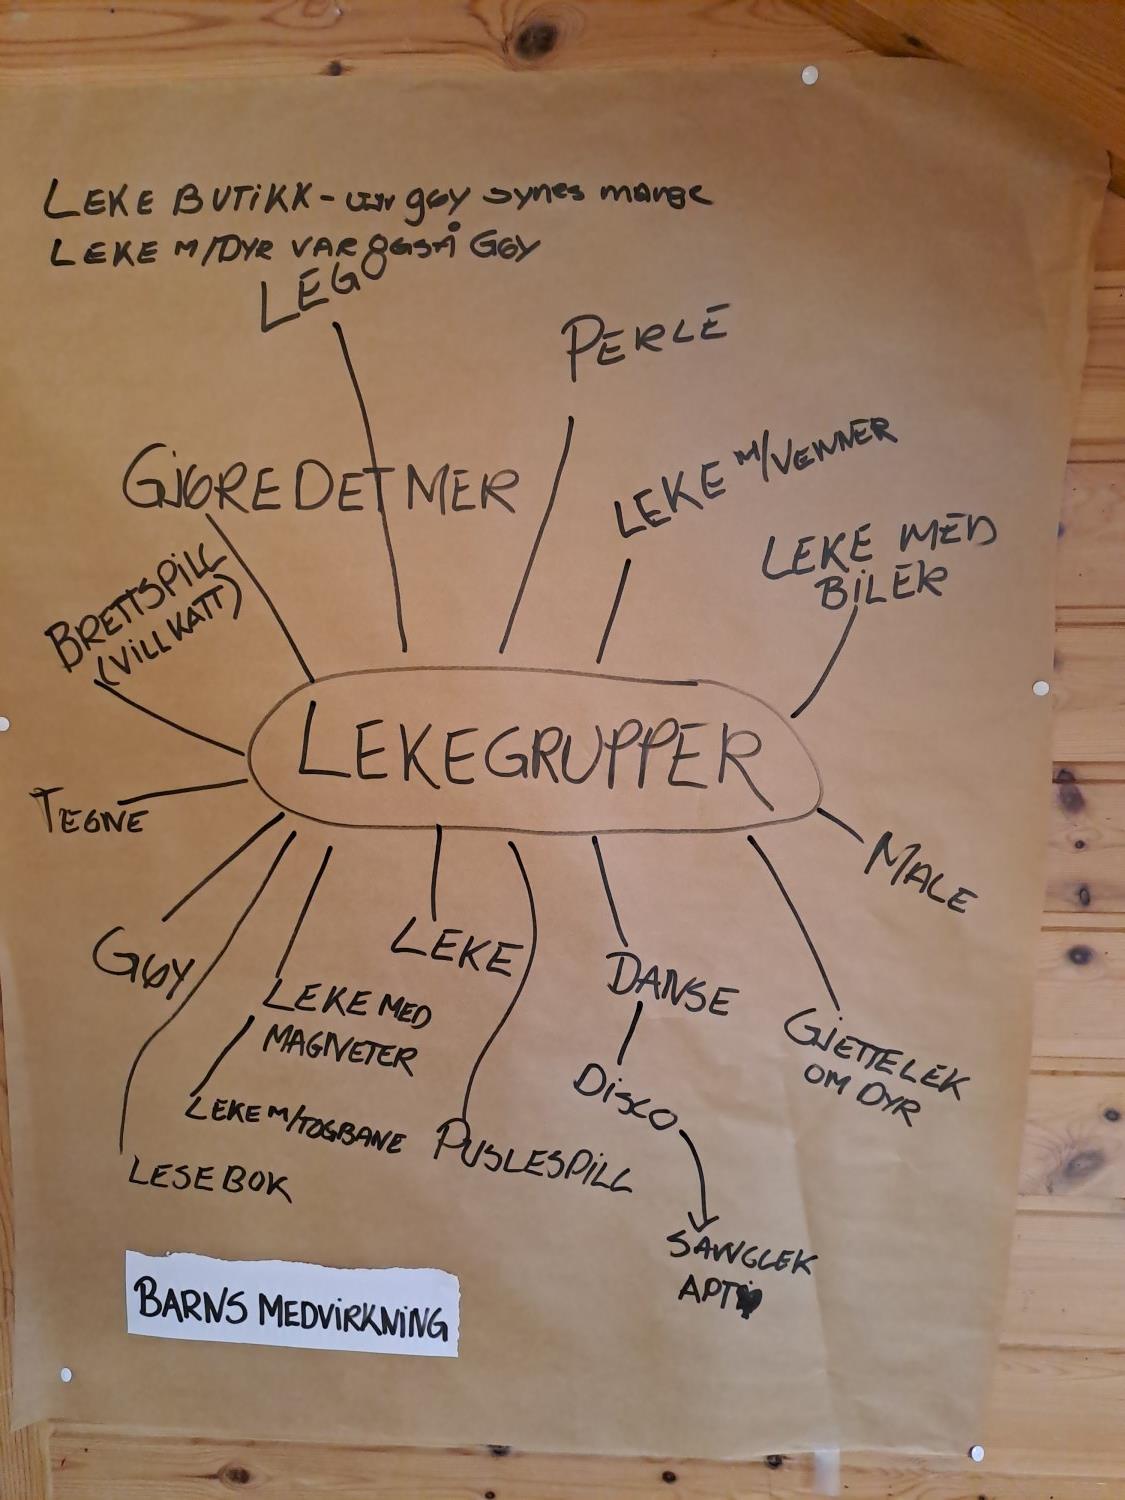 LEKE BUTIKK - var gøy synes mange
LEKE M/DYR VAR OGSÅ GØY
LEGO
PERLE
GJØRE DET MER
LEKE M/VENNER
LEKE MED
BILER
BRETTSPILL
(VILLKATT)
LEKEGRUPPER
TEGNE
MALE
GØY
LEKE
DANSE
LEKE MED
MAGNETER
GJETTELEK
OM DYR
DISCO
LEKE M/TOGBANE
PUSLESPILL
LESE BOK
SANGLEK
BARNS MEDVIRKNING